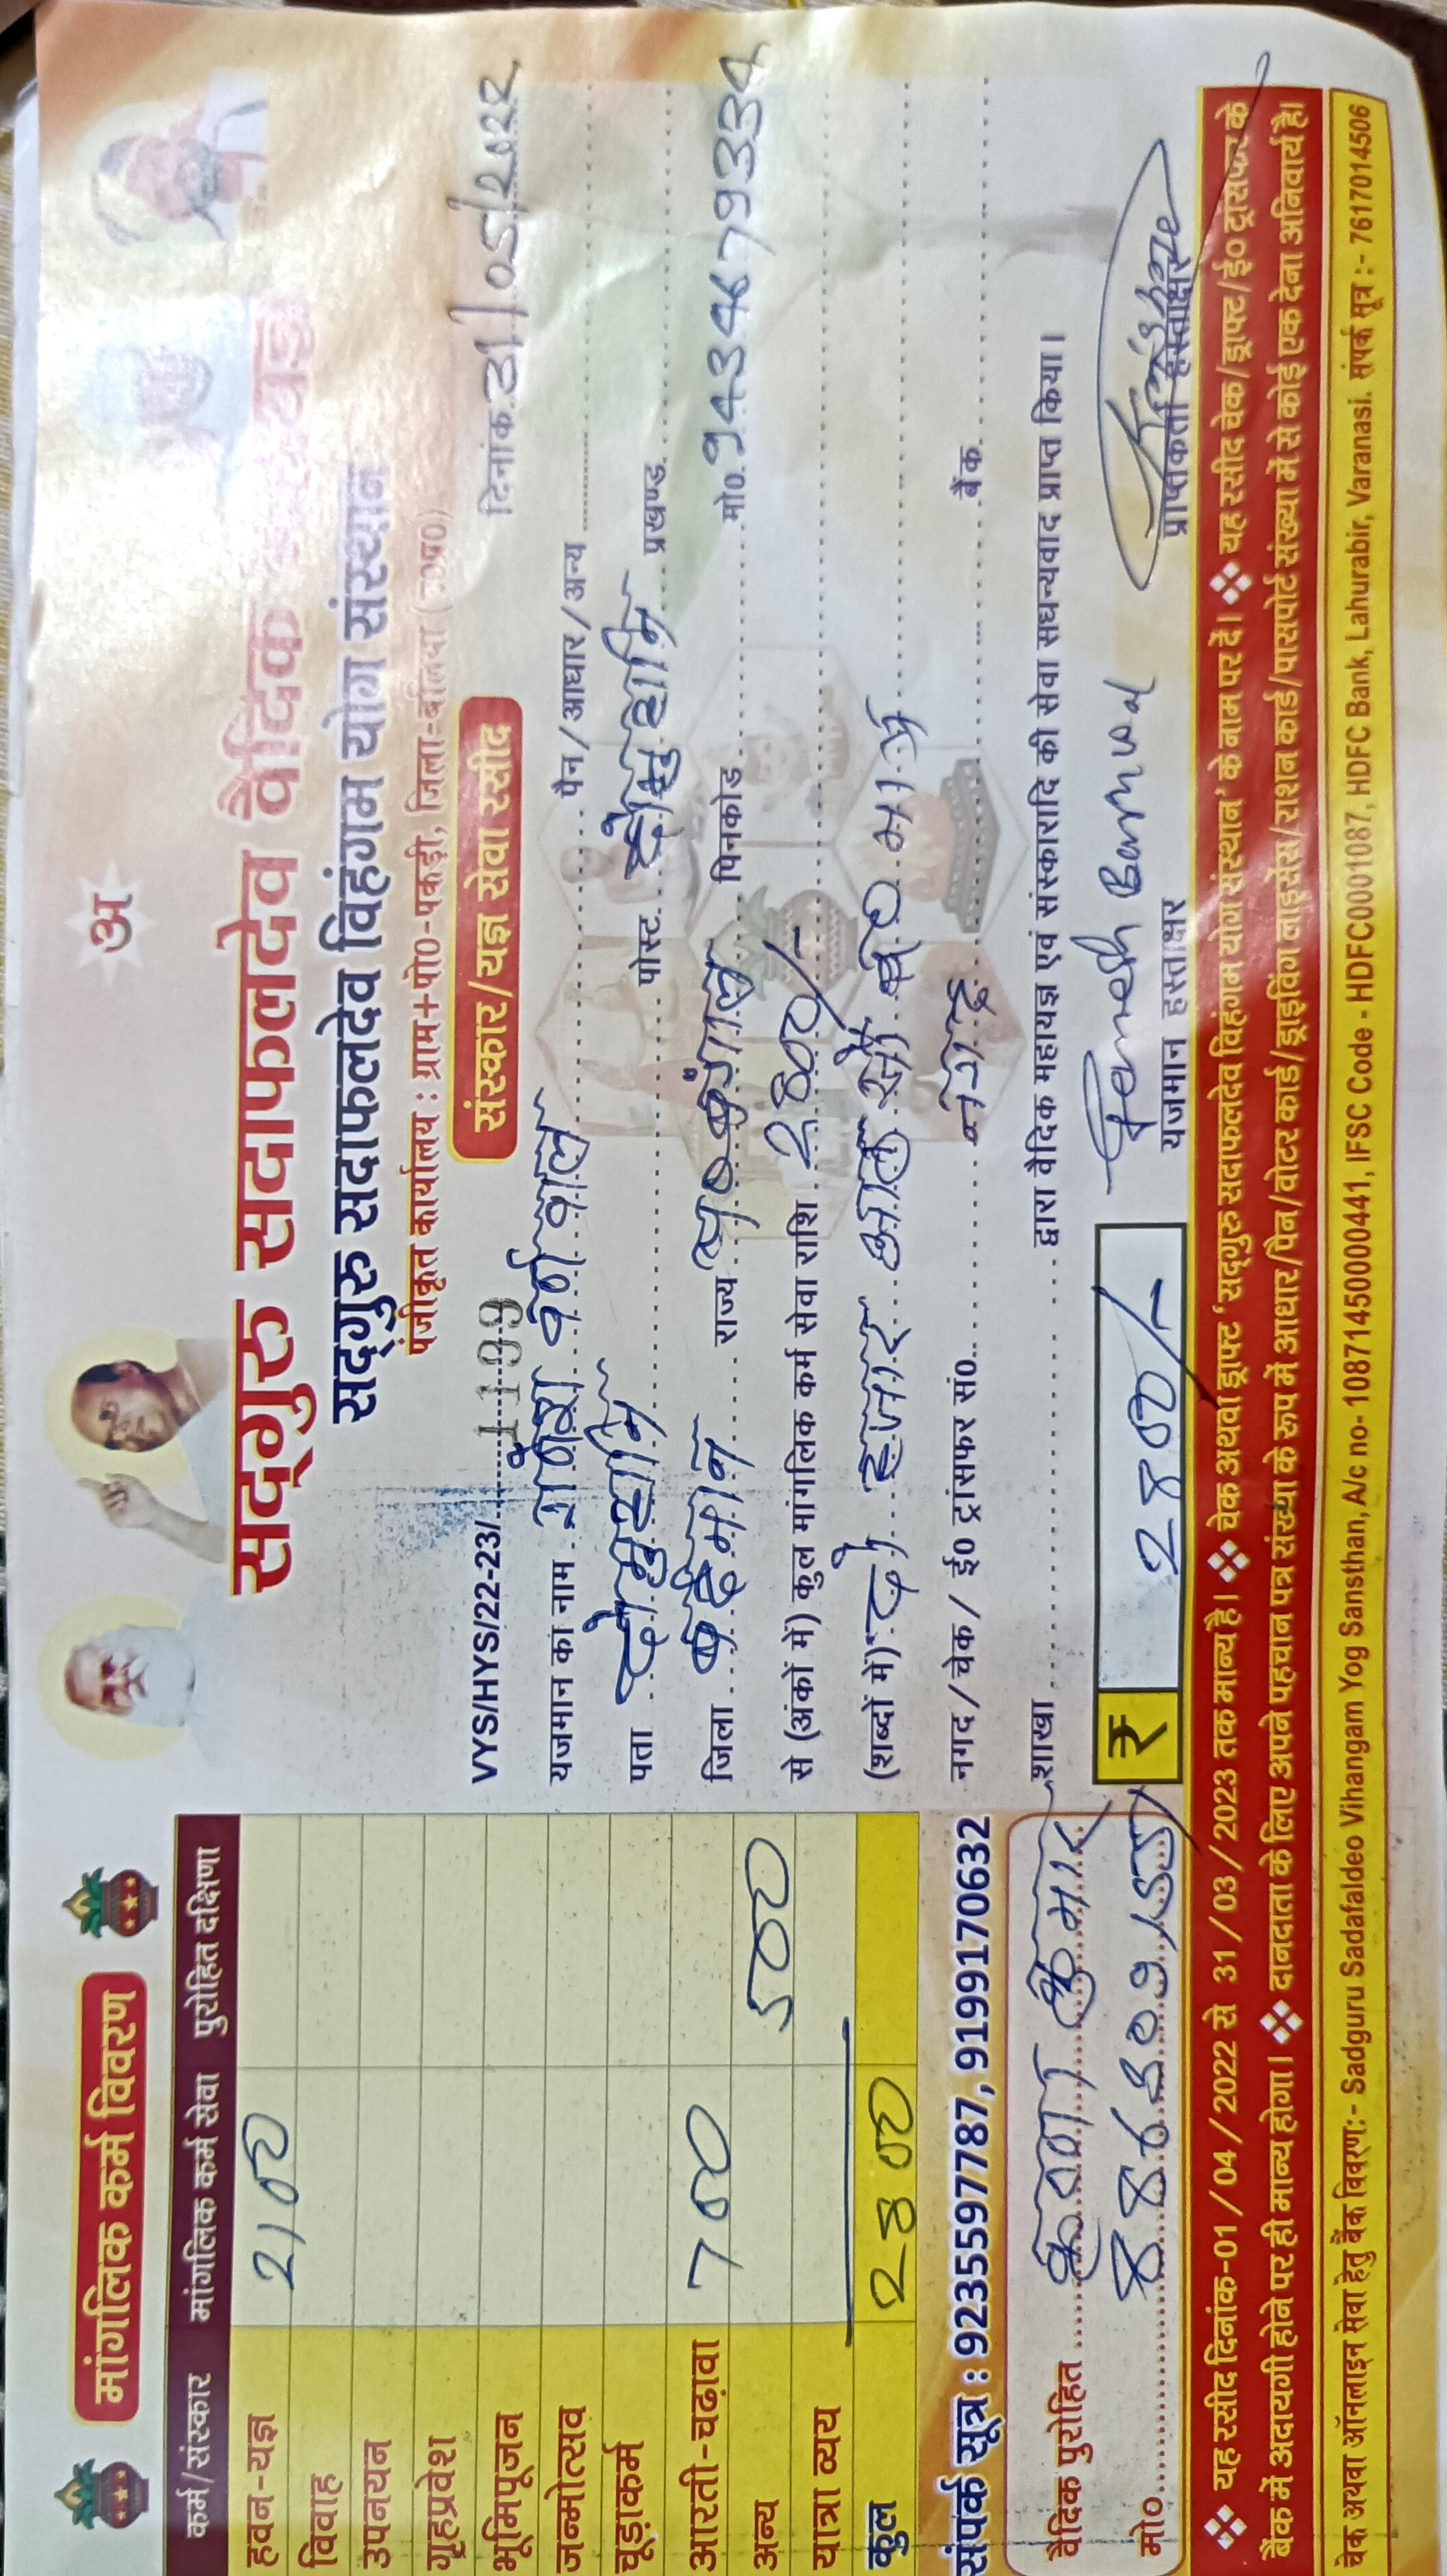 मांगलिक कर्म विवरण
कर्म/संस्कार मांगलिक कर्म सेवा पुरोहित दक्षिणा
हवन-यज्ञ 2100
विवाह
उपनयन
गृहप्रवेश
भूमिपूजन
जन्मोत्सव
चूड़ाकर्म
आरती-चढ़ावा 700
अन्य 500
यात्रा व्यय
कुल 2800
संपर्क सूत्र : 9235597787, 9199170632
वैदिक पुरोहित कुमार
मो०
अ
सद्गुरु सदाफलदेव वैदिक
सद्गुरु सदाफलदेव विहंगम योग संस्थान
पंजीकृत कार्यालय : ग्राम+पो०-पकड़ी, जिला-बलिया (उ०प्र०)
संस्कार/यज्ञ सेवा रसीद
VYS/HYS/22-23/ 1199 दिनांक 31/05/2022
यजमान का नाम पैन/आधार/अन्य
पता पोस्ट प्रखण्ड
जिला राज्य पिनकोड मो० 9434679334
से (अंकों में) कुल मांगलिक कर्म सेवा राशि 2800/-
(शब्दों में) दो हजार आठ सौ मात्र
नगद/चेक/ ई० ट्रांसफर सं० नगद बैंक
शाखा द्वारा वैदिक महायज्ञ एवं संस्कारादि की सेवा सधन्यवाद प्राप्त किया।
₹ 2800/-
यजमान हस्ताक्षर प्राप्तकर्ता हस्ताक्षर
❖ यह रसीद दिनांक-01/04/2022 से 31/03/2023 तक मान्य है। ❖ चेक अथवा ड्राफ्ट 'सद्गुरु सदाफलदेव विहंगम योग संस्थान' के नाम पर दें। ❖ यह रसीद चेक/ड्राफ्ट/ई० ट्रांसफर के
बैंक में अदायगी होने पर ही मान्य होगा। ❖ दानदाता के लिए अपने पहचान पत्र संख्या के रूप में आधार/पैन/वोटर कार्ड/ड्राइविंग लाइसेंस/राशन कार्ड/पासपोर्ट संख्या में से कोई एक देना अनिवार्य है।
चेक अथवा ऑनलाइन सेवा हेतु बैंक विवरण:- Sadguru Sadafaldeo Vihangam Yog Sansthan, A/c no- 10871450000441, IFSC Code - HDFC0001087, HDFC Bank, Lahurabir, Varanasi. संपर्क सूत्र :- 7617014506